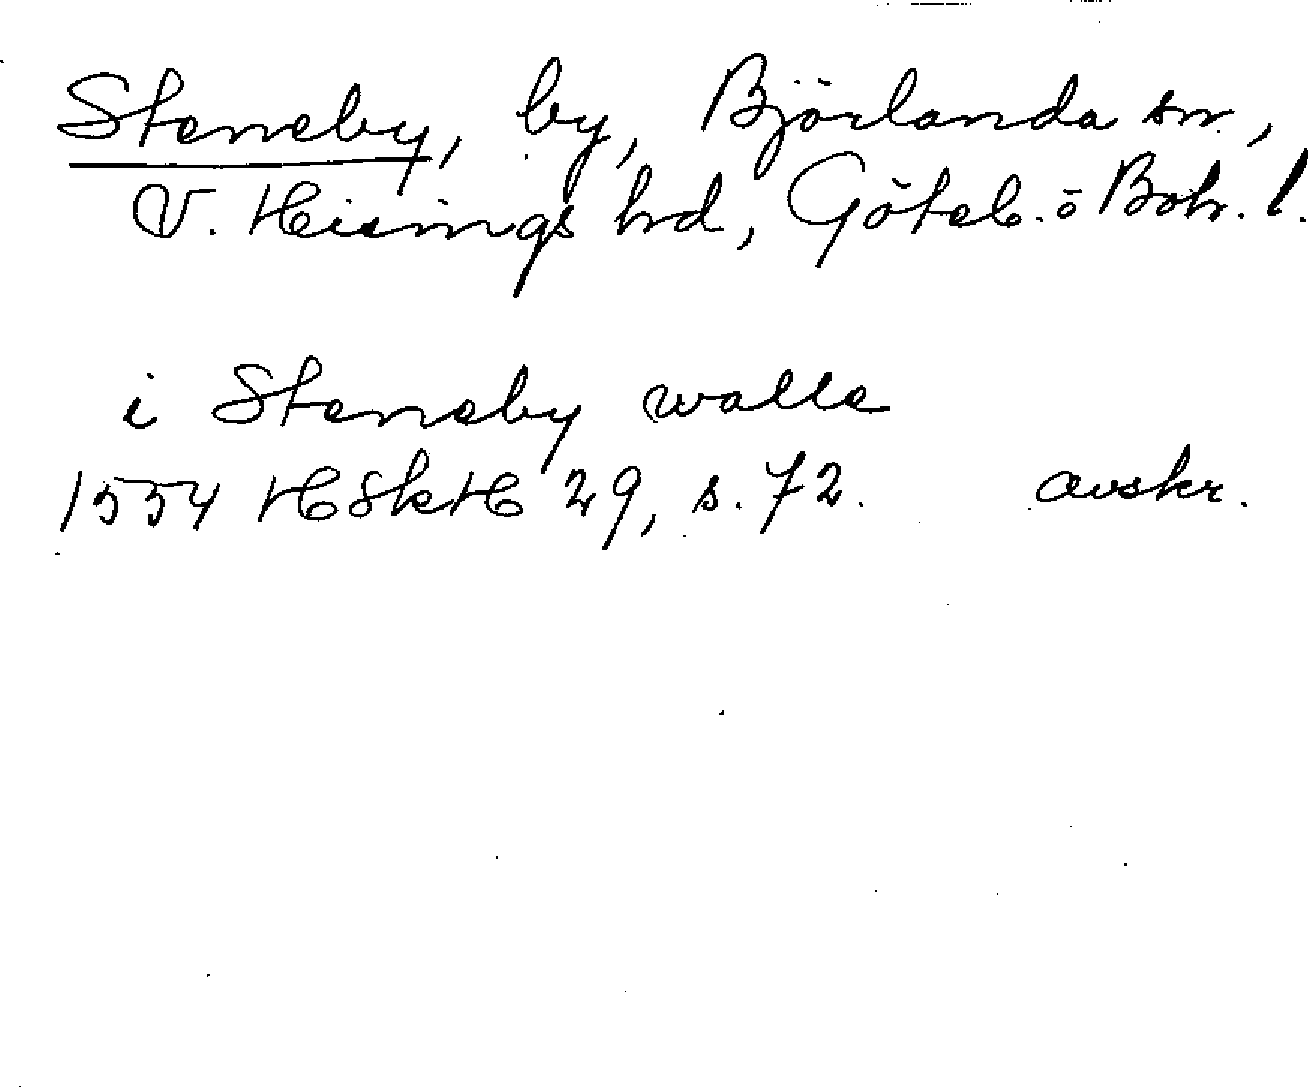 Steneby, by, Björlanda sn,
V. Hisings hd, Göteb. o Boh. l.
i Steneby walle
1554 HSkH 29, s. 72. avskr.